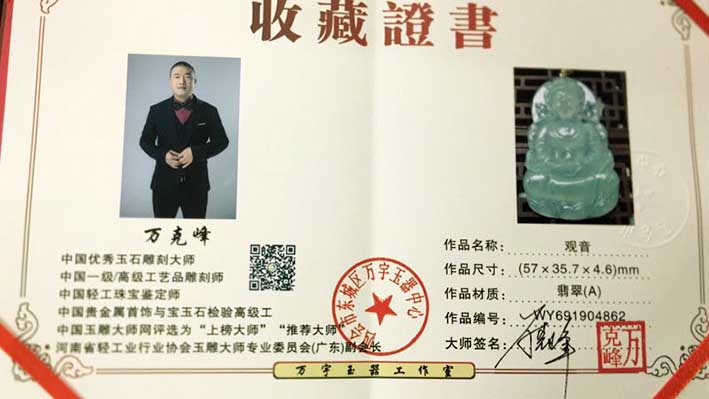 收藏證書
万克峰
中国优秀玉石雕刻大师
中国一级/高级工艺品雕刻师
中国轻工珠宝鉴定师
中国贵金属首饰与宝玉石检验高级工
中国玉雕大师网评选为“上榜大师”“推荐大师”
河南省轻工业行业协会玉雕大师专业委员会(广东)副会长
会市东城区万字玉器中心
作品名称: 观音
作品尺寸: (57×35.7×4.6)mm
作品材质: 翡翠(A)
作品编号: WY691904862
大师签名:
万克峰
万字玉器工作室